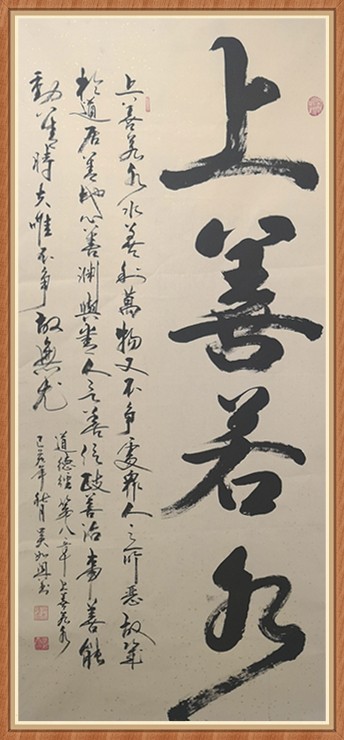 上善若水
上善若水水善利萬物又不争處眾人之所惡故幾
於道居善地心善渊與善人言善信政善治事善能
動善時夫唯不争故無尤
道德經第八章上善若水
己亥年秋月吴